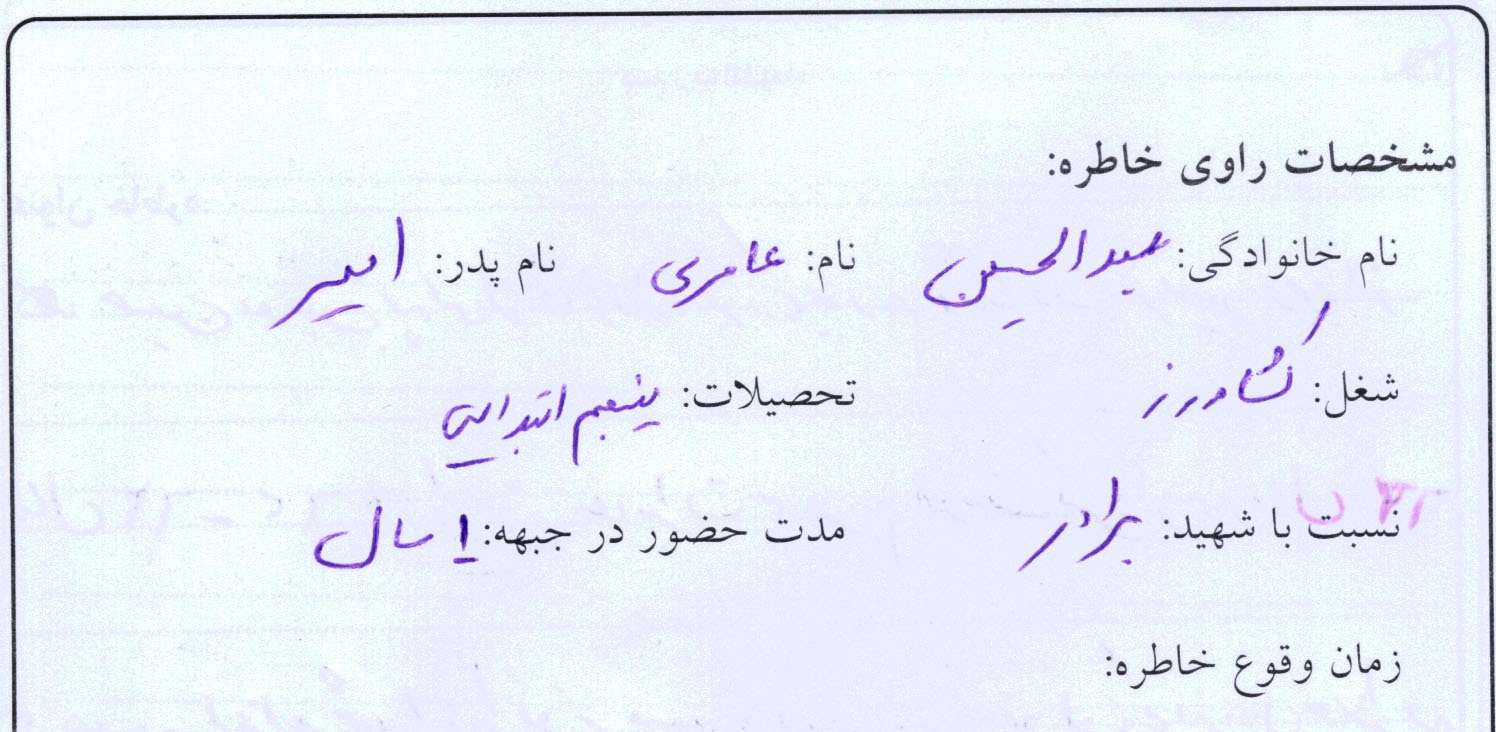 مشخصات راوی خاطره:
نام خانوادگی: عبدالحسین نام: عامری نام پدر: امیر
شغل: کشاورز تحصیلات: پنجم ابتدایی
نسبت با شهید: برادر مدت حضور در جبهه: ۱ سال
زمان وقوع خاطره: